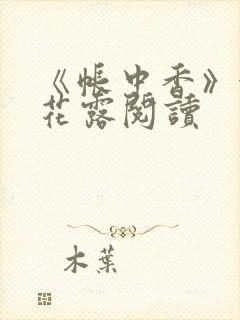 《帳中香》
花露閱讀
木葉